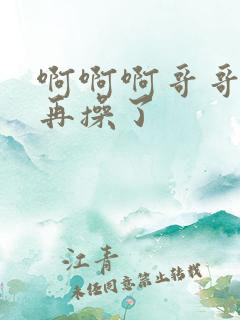 啊啊啊哥哥
再操了
江青
未经同意禁止转载